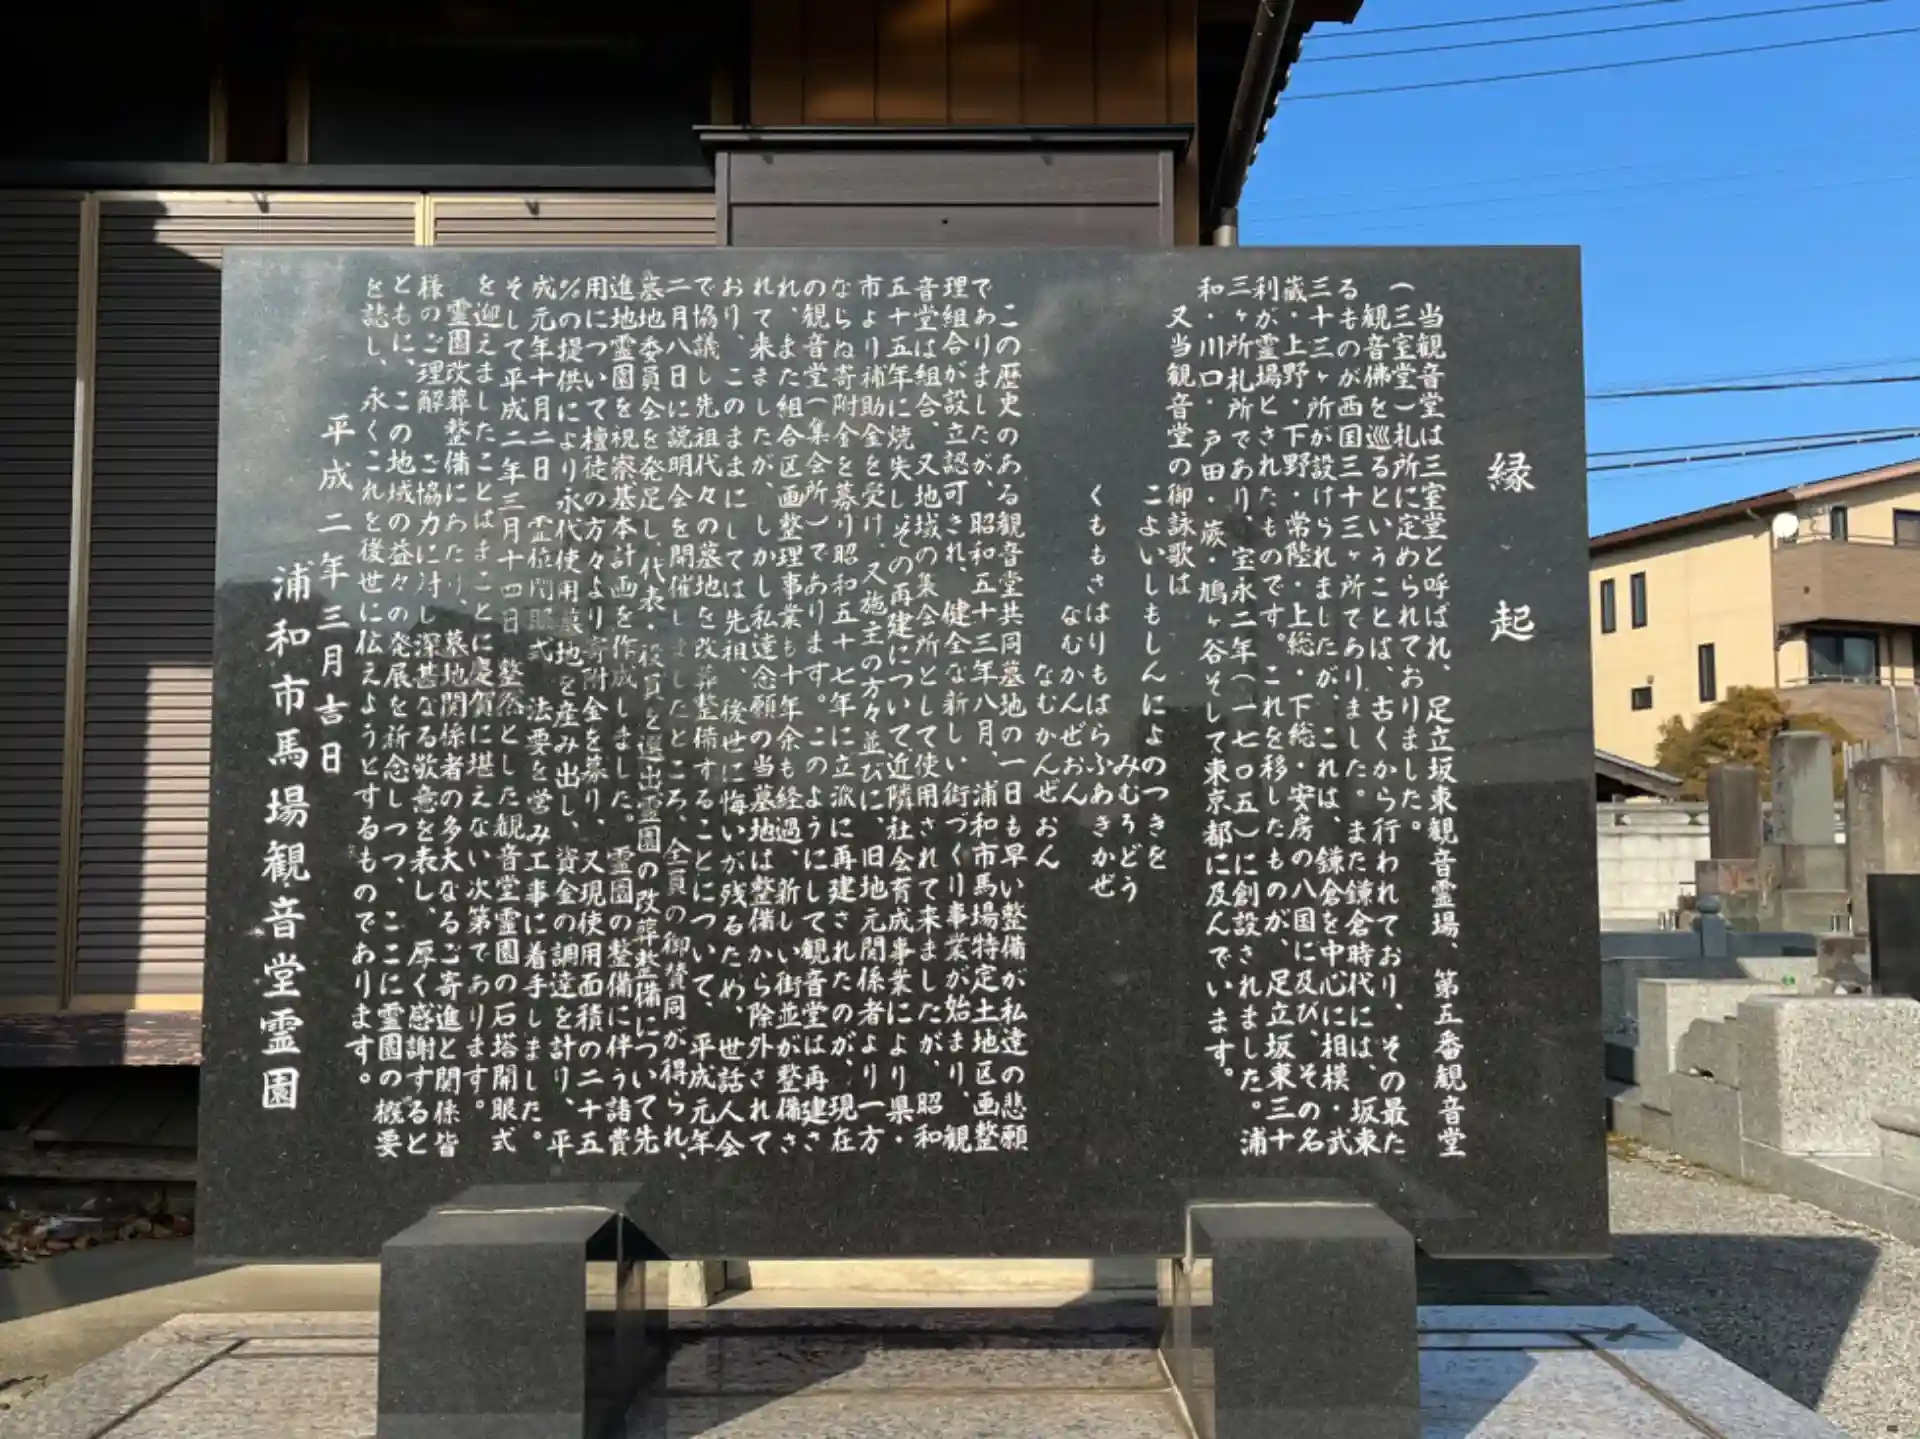 縁起
当観音堂は三室堂と呼ばれ、足立坂東観音霊場、第五番観音堂
（三室堂）札所に定められておりました。
観音佛を巡るということば、古くから行われており、その最た
るものが西国三十三ヶ所でありました。また鎌倉時代には、坂東
三十三ヶ所が設けられましたが、これは、鎌倉を中心に相模・武
蔵・上野・下野・常陸・上総・下総・安房の八国に及び、その名
利が霊場とされたものです。これを移したものが、足立坂東三十
三ヶ所札所であり、宝永二年（一七〇五）に創設されました。浦
和・川口・戸田・蕨・鳩ヶ谷そして東京都に及んでいます。
又当観音堂の御詠歌は
こよいしもしんによのつきを
みむろどう
くももさはりもはらふあきかぜ
なむかんぜおん
なむかんぜおん
この歴史のある観音堂共同墓地の一日も早い整備が私達の悲願
でありましたが、昭和五十三年八月、浦和市馬場特定土地区画整
理組合が設立認可され、健全な新しい街づくり事業が始まり、観
音堂は組合、又地域の集会所として使用されて来ましたが、昭和
五十五年に焼失し、その再建について近隣社会育成事業により県・
市より補助金を受け、又施主の方々並びに、旧地元関係者より一方
ならぬ寄附金を募り昭和五十七年に立派に再建されたのが、現在
の観音堂（集会所）であります。このようにして観音堂は再建さ
れ、また組合区画整理事業も十年余も経過、新しい街並が整備さ
れて来ましたが、しかし私達念願の当墓地は整備から除外されて
おり、このままにしては先祖、後世に悔いが残るため、世話人会
で協議し先祖代々の墓地を改葬整備することについて、平成元年
二月八日に説明会を開催しましたところ、全員の御賛同が得られ、
墓地委員会を発足し、代表・役員を選出霊園の改葬整備について先
進地霊園を視察基本計画を作成しました。霊園の整備に伴う諸費
用について檀徒の方々より寄附金を募り、又現使用面積の二十五
％の提供により永代使用墓地を産み出し、資金の調達を計り、平
成元年十月二日 霊位閉眼式 法要を営み工事に着手しました。
そして平成二年三月十四日 整然とした観音堂霊園の石塔開眼式
を迎えましたことはまことに慶賀に堪えない次第であります。
霊園改葬整備にあたり、墓地関係者の多大なるご寄進と関係皆
様のご理解 ご協力に対し深甚なる敬意を表し、厚く感謝すると
ともに、この地域の益々の発展を祈念しつつ、ここに霊園の概要
を誌し、永くこれを後世に伝えようとするものであります。
平成二年三月吉日
浦和市馬場観音堂霊園